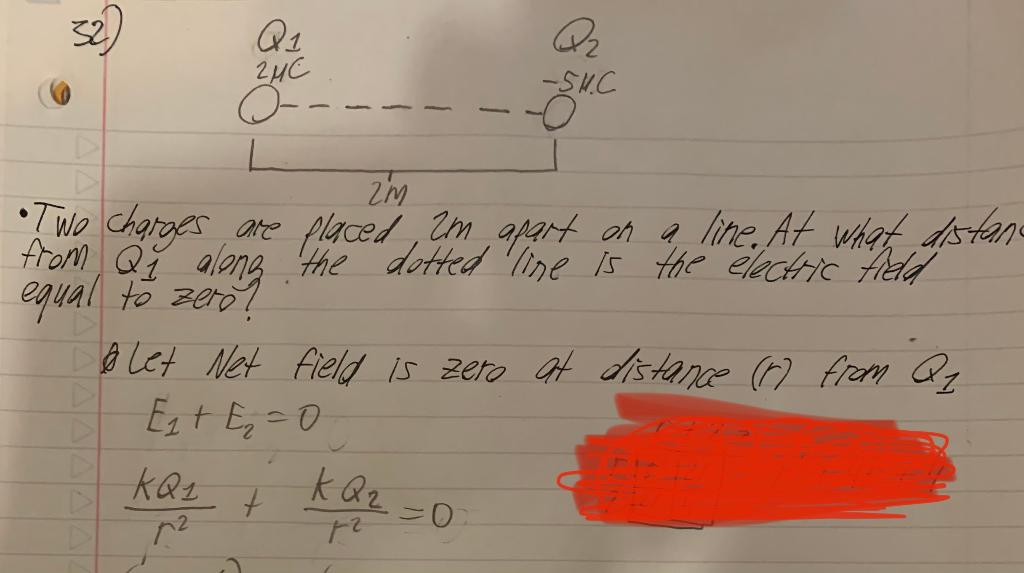 32)
Q1 Q2
2μC -5μ.C
2m
•Two charges are placed 2m apart on a line. At what distan
from Q1 along the dotted line is the electric field
equal to zero?
Let Net field is zero at distance (r) from Q1
E1 + E2 = 0
kQ1/r² + kQ2/r² = 0